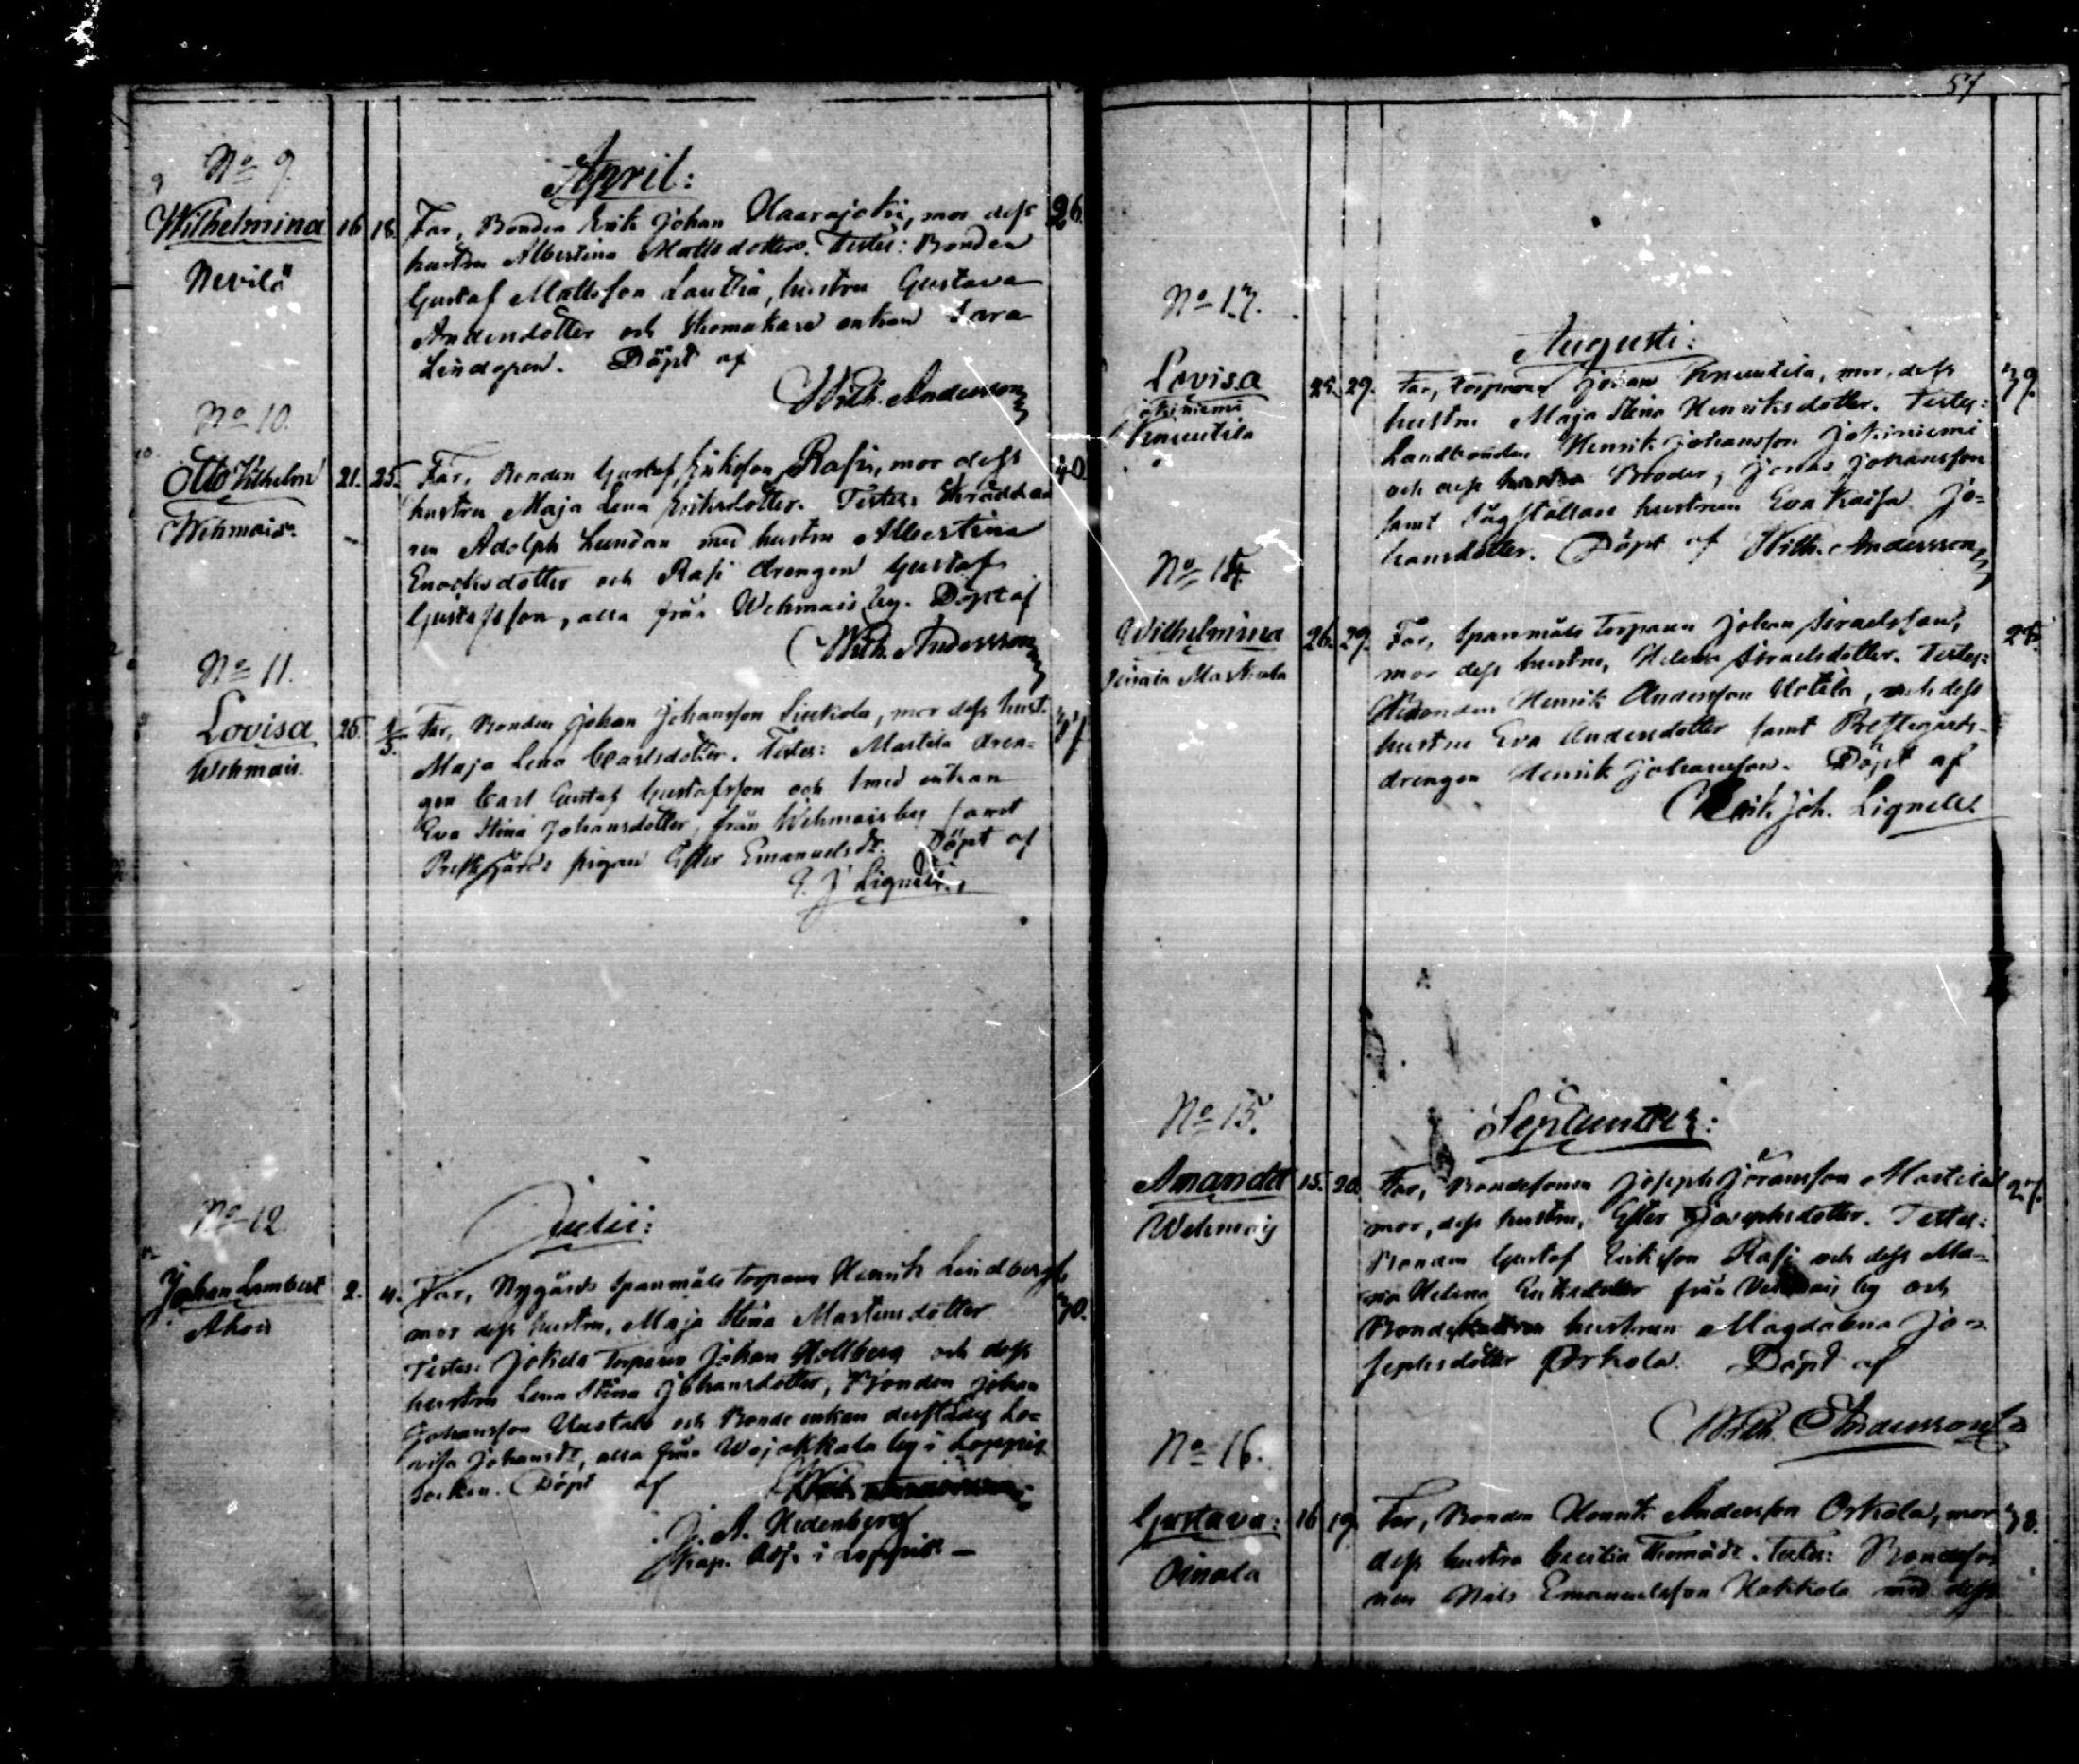 No 9.
9
April:
Wilhelmina 16 18. Far, Bonden Erik Johan Haarajoki, mor dess 26.
Nevilä
hustru Albertina Mattsdotter. Testes: Bonden
Gustaf Mattsson Lauttia, hustru Gustava
Andersdotter och Skomakare enkan Sara
Lindgren. Döpt af
Wilh. Andersson
No 10.
10.
Otto Vilhelm 21. 25. Far, Bonden Gustaf Eriksson Rasi, mor dess 40.
Wehmais.
hustru Maja Lena Eriksdotter. Testes: Skrädda
ren Adolph Lundan med hustru Albertina
Enocksdotter och Rasi drengen Gustaf
Gustafsson, alla från Wehmais by. Döpt af
Wilh. Andersson
No 11.
Lovisa 26. 1/5. Far, Bonden Johan Johansson Siukola, mor dess hust.
Wehmais.
Maja Lena Carlsdotter. Testes: Martila dren=
gen Carl Gustaf Gustafsson och Smed enkan
Eva Stina Johansdotter, från Wehmais by samt
Prestgårds pigan Ester Emanuelsdr. Döpt af
E. J. Lignell.
No 12.
Julii:
Johan Lambert 2. 4. Far, Nygårds Spanmåls Torparen Henrik Lindberg 30.
Ahois
mor dess hustru, Maja Stina Martensdotter
Testes: Jokela Torparen Johan Hollberg och dess
hustru Lena Stina Johansdotter, Bonden Johan
Johansson Uustalo och Bonde enkan derstädes Lo=
visa Johansdr, alla från Wojakkala by i Loppis
Socken. Döpt af
J. A. Hedenberg
Kap. Adj. i Loppis. —
57
No 13.
Augusti:
Lovisa 25. 29. Far, Torparen Johan Knuutila, mor, dess 39.
Jokiniemi
Knuutila
hustru Maja Stina Henriksdotter. Testes:
Landbonden Henrik Johansson Jokiniemi
och dess Broder, Jonas Johansson
samt Sågställare hustrun Eva Kaisa Jo=
hansdotter. Döpt af Wilh. Andersson
No 14.
Wilhelmina 26. 29. Far, Spanmåls Torparen Johan Israelsson,
mor dess hustru, Helena Israelsdotter. Testes:
Bonden Henrik Andersson Uotila, och dess
hustru Eva Andersdotter samt Prestegårds-
drengen Henrik Johansson. Döpt af
Erik Joh. Lignell.
No 15.
September:
Amanda 15. 20. Far, Bondesonen Joseph Jöransson Martila 27.
Wehmais
mor, dess hustru, Ester Josephsdotter. Testes:
Bonden Gustaf Eriksson Rasi och dess Ma=
ria Helena Eriksdotter från Vehmais by och
hustrun Magdalena Jo=
sephsdotter Orkola. Döpt af
Wilh. Andersson
No 16.
Gustava: 16 19. Far, Bonden Henrik Andersson Orkola, mor 38.
Oinala
dess hustru Cecilia Thomådr. Testes: Bondeso
nen Nils Emanuelsson Hakkola med dess